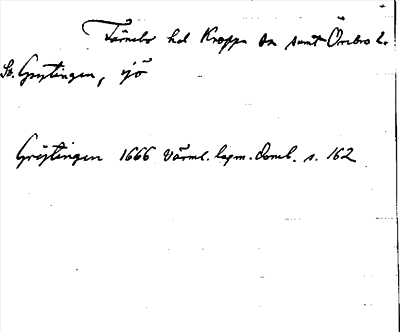 Färnebo hd Kroppa sn samt Örebro l.
St. Grystingen, sjö
Gröstingen 1666 Värml. lagm. domb. s. 162